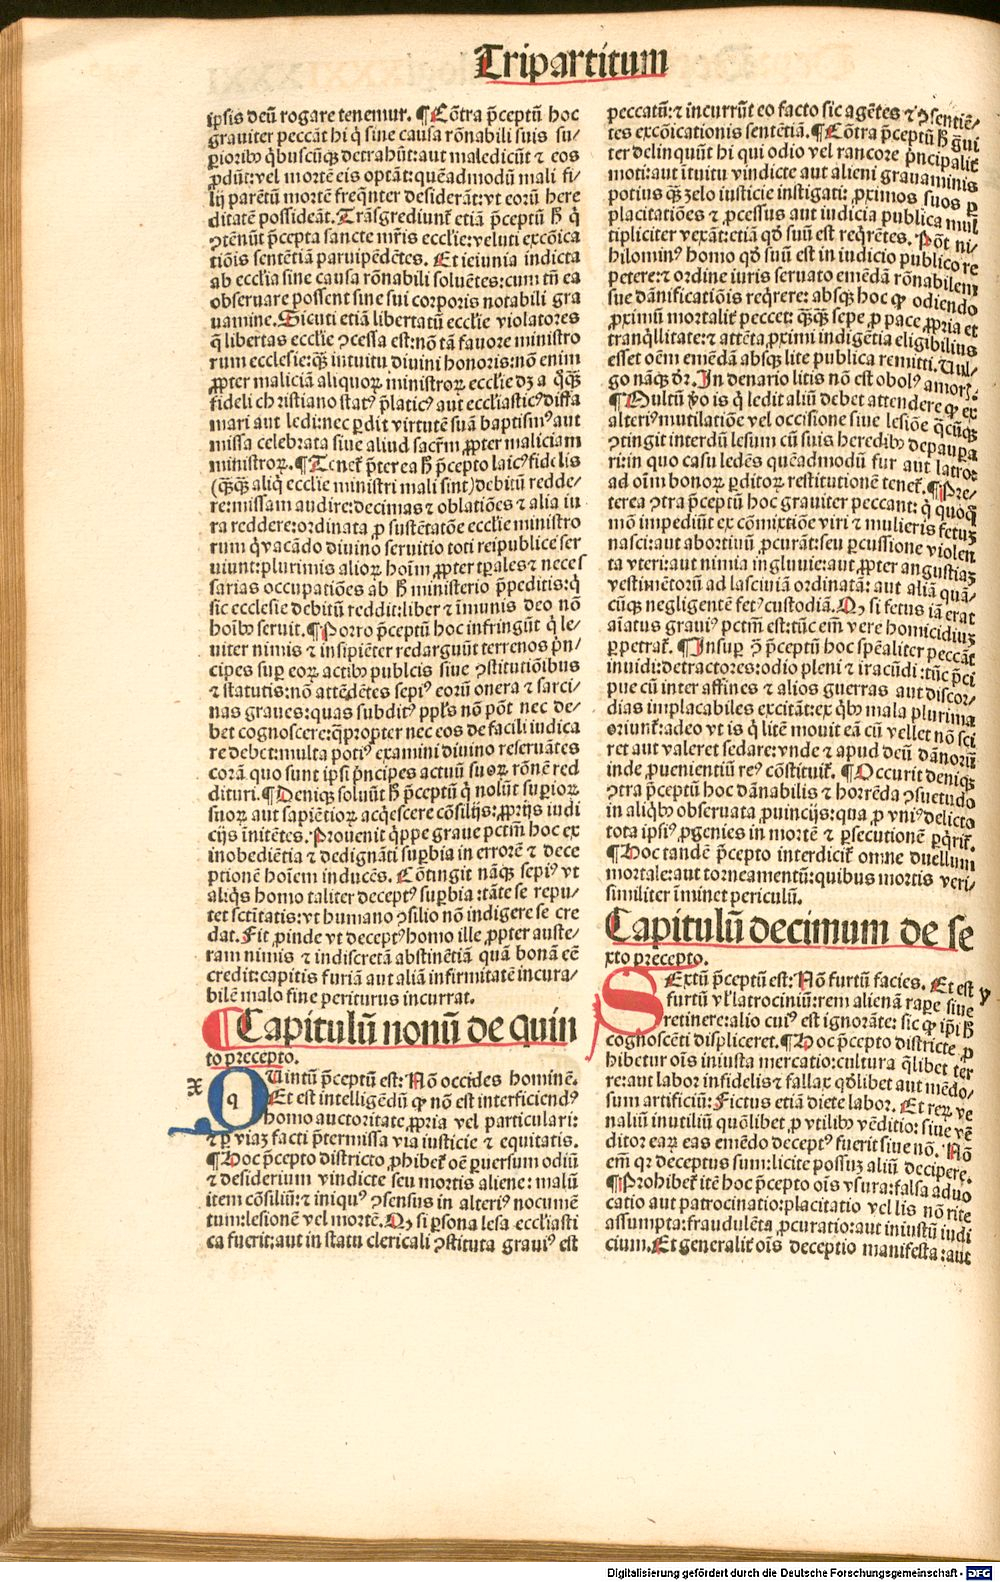 Tripartitum
ipsis deū rogare tenemur. ¶ Cōtra p̄ceptū hoc
grauiter peccāt hi q̇ sine causa rōnabili suis su/
perioribꝰ q̇buscūqꝫ detrahūt: aut maledicūt ⁊ eos
ꝓdūt: vel mortē eis optāt: quēadmodū mali fi/
lij parētū mortē freq̄nter desiderāt: vt eorū here
ditatē possideāt. Trāsgrediunt̄ etiā p̄ceptū ħ q̇
ꝯtēnūt p̄cepta sancte mr̄is ecclīe: veluti excōica
tiōis sententiā paruipēdētes. Et ieiunia indicta
ab ecclīa sine causa rōnabili soluētes: cum tn̄ ea
obseruare possent sine sui corporis notabili gra
uamine. Sicuti etiā libertatū ecclīe violatores
q̇ libertas ecclīe ꝯcessa est: nō tā fauore ministro
rum ecclesie: qꝫ̄ intuitu diuini honoris: nō enim
ꝓpter maliciā aliquoꝝ ministroꝝ ecclīe dꝫ a q̇qꝫ̄
fideli christiano statꝰ p̄laticꝰ aut ecclīasticꝰ diffa
mari aut ledi: nec ꝑdit virtutē suā baptismꝰ aut
missa celebrata siue aliud sacr̄m ꝓpter maliciam
ministroꝝ. ¶ Tenet̄ p̄terea ħ p̄cepto laicꝰ fidelis
(qꝫ̄qꝫ̄ aliq̇ ecclīe ministri mali sint) debitū redde/
re: missam audire: decimas ⁊ oblatiōes ⁊ alia iu
ra reddere: ordinata ꝓ sustētatōe ecclīe ministro
rum q̇ vacādo diuino seruitio toti reipublice ser
uiunt: plurimis alioꝝ hoīm ꝓpter tꝑales ⁊ neces
sarias occupatiōes ab ħ ministerio p̄peditis: q̇
sic ecclesie debitū reddit: liber ⁊ īmunis deo nō
hoībꝰ seruit. ¶ Porro p̄ceptū hoc infringūt q̇ le/
uiter nimis ⁊ insipiēter redarguūt terrenos p̄n/
cipes suꝑ eoꝝ actibꝰ publcis siue ꝯstitutiōibus
⁊ statutis: nō attēdētes sepiꝰ eorū onera ⁊ sarci/
nas graues: quas subditꝰ pplꝰs nō pōt nec de/
bet cognoscere: q̄propter nec eos de facili iudica
re debet: multa potiꝰ examini diuino reseruātes
corā quo sunt ipsi p̄ncipes actuū suoꝝ rōnē red
dituri. ¶ Deniqꝫ soluūt ħ p̄ceptū q̇ nolūt suꝑioꝝ
suoꝝ aut sapiētioꝝ acq̇escere cōsilijs: ꝓprijs iudi
cijs īnitētes. Prouenit q̇ppe graue pctm̄ hoc ex
inobediētia ⁊ dedignāti suꝑbia in errorē ⁊ dece
ptionē hoīem inducēs. Cōtingit nāqꝫ sepiꝰ vt
aliq̇s homo taliter deceptꝰ suꝑbia: tāte se repu/
tet sctītatis: vt humano ꝯsilio nō indigere se cre
dat. Fit ꝓinde vt deceptꝰ homo ille ꝓpter auste/
ram nimis ⁊ indiscretā abstinētiā quā bonā eē
credit: capitis furiā aut aliā infirmitatē incura/
bilē malo fine periturus incurrat.
¶ Capitulū nonū de quin
to precepto.
x
q QUintū p̄ceptū est: Nō occides hominē.
Et est intelligēdū ꝙ nō est interficiendꝰ
homo auctoritate ꝓpria vel particulari:
⁊ ꝑ viaꝫ facti p̄termissa via iusticie ⁊ equitatis.
¶ Hoc p̄cepto districto ꝓhibet̄ oē ꝑuersum odiū
⁊ desiderium vindicte seu mortis aliene: malū
item cōsiliū: ⁊ iniquꝰ ꝯsensus in alteriꝰ nocumē
tum: lesionē vel mortē. Qꝫ si ꝑsona lesa ecclīasti
ca fuerit: aut in statu clericali ꝯstituta grauiꝰ est
peccatū: ⁊ incurrūt eo facto sic agētes ⁊ ꝯsentiē/
tes excōicationis sentētiā. ¶ Cōtra p̄ceptū ħ g̊ui
ter delinquūt hi qui odio vel rancore p̄ncipalit̄
moti: aut ītuitu vindicte aut alieni grauaminis
potius qꝫ̄ zelo iusticie instigati: ꝓximos suos ꝑ
placitatiōes ⁊ ꝓcessus aut iudicia publica mul
tipliciter vexāt: etiā qd̄ suū est req̇rētes. Pōt ni/
hilominꝰ homo qd̄ suū est in iudicio publico re
petere: ⁊ ordine iuris seruato emēdā rōnabilem
sue dānificatiōis req̇rere: absqꝫ hoc ꝙ odiendo
ꝓximū mortalit̄ peccet: qꝫ̄qꝫ̄ sepe ꝓ pace ꝓpria et
tranq̇llitate: ⁊ attēta ꝓximi indigētia eligibilius
esset oēm emēdā absqꝫ lite publica remitti. Uul/
go nāqꝫ dr̄. In denario litis nō est obolꝰ amorꝭ.
¶ Multū ꝟo is q̇ ledit aliū debet attendere ꝙ ex
alteriꝰ mutilatiōe vel occisione siue lesiōe q̄cūqꝫ
ꝯtingit interdū lesum cū suis heredibꝰ depaupa
ri: in quo casu ledēs quēadmodū fur aut latro:
ad oīm bonoꝝ ꝑditoꝝ restitutionē tenet̄. ¶ Pre/
terea ꝯtra p̄ceptū hoc grauiter peccant: q̇ quoqꝫ
mō impediūt ex cōmixtiōe viri ⁊ mulieris fetuꝫ
nasci: aut abortiuū ꝓcurāt: seu ꝑcussione violen
ta vteri: aut nimia ingluuie: aut ꝓpter angustiaꝫ
vestimētorū ad lasciuiā ordinatā: aut aliā quā/
cūqꝫ negligentē fetꝰ custodiā. Qꝫ si fetus iā erat
aīatus grauiꝰ pctm̄ est: tūc em̄ vere homicidiuꝫ
ꝑpetrat̄. ¶ Insuꝑ ꝯ p̄ceptū hoc spēaliter peccāt
inuidi: detractores: odio pleni ⁊ iracūdi: tūc p̄ci
pue cū inter affines ⁊ alios guerras aut discor/
dias implacabiles excitāt: ex q̇bꝰ mala plurima
oriunt̄: adeo vt is q̇ litē mouit eā cū vellet nō sci
ret aut valeret sedare: vnde ⁊ apud deū dānorū
inde ꝓuenientiū reꝰ cōstituit̄. ¶ Occurit deniqꝫ
ꝯtra p̄ceptū hoc dānabilis ⁊ horrēda ꝯsuetudo
in aliq̇bꝰ obseruata ꝓuincijs: qua ꝓ vniꝰ delicto
tota ipsiꝰ ꝓgenies in mortē ⁊ ꝑsecutionē ꝑq̇rit̄.
¶ Hoc tandē p̄cepto interdicit̄ omne duellum
mortale: aut torneamentū: quibus mortis veri/
similiter īminet periculū.
Capitulū decimum de se
xto precepto.
SExtū p̄ceptū est: Nō furtū facies. Et est y
furtū vl̓ latrociniū: rem alienā raꝑe siue
retinere: alio cuiꝰ est ignorāte: sic ꝙ ip̄i ħ
cognoscēti displiceret. ¶ Hoc p̄cepto districte ꝓ
hibetur oīs iniusta mercatio: cultura q̄libet ter
re: aut labor infidelis ⁊ fallax qd̄libet aut mēdo/
sum artificiū: Fictus etiā diete labor. Et reꝝ ve
naliū inutiliū quōlibet ꝓ vtilibꝰ vēditio: siue vē
ditor eaꝝ eas emēdo deceptꝰ fuerit siue nō. Nō
em̄ qꝛ deceptus sum: licite possuꝫ aliū decipere.
¶ Prohibet̄ itē hoc p̄cepto oīs vsura: falsa aduo
catio aut patrocinatio: placitatio vel lis nō rite
assumpta: fraudulēta ꝓcuratio: aut iniustū iudi
cium. Et generalit̄ oīs deceptio manifesta: aut
Digitalisierung gefördert durch die Deutsche Forschungsgemeinschaft - DFG